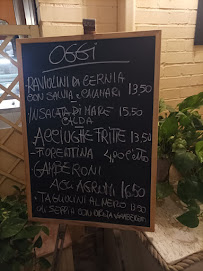 OGGI
RAVIOLINI DI CERNIA
CON SALVIA E CALAMARI 13,50
INSALATA DI MARE 15.50
CALDA
ACCIUGHE FRITTE 13.50
- FIORENTINA
GAMBERONI
AGLI AGRUMI 16.50
• TAGLIOLINI AL NERO
DI SEPPIA CON